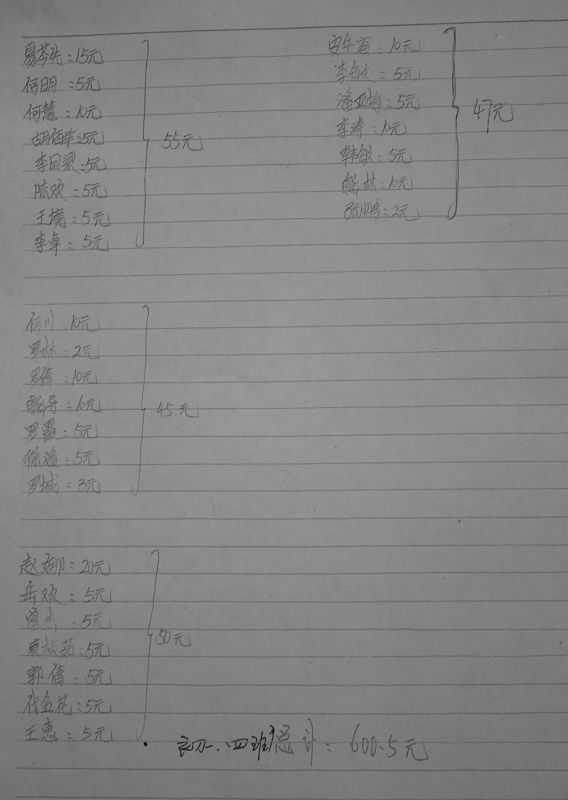 易芩先：15元
何明：5元
何慧：10元
胡佰苹：5元
李目梁：5元
陈欢：5元
王境：5元
李卓：5元
55元
：10元
李：5元
潘亚梅：5元
李涛：10元
韩敏：5元
熊林：10元
张鹏：2元
47元
何川：10元
罗林：2元
罗倩：10元
：10元
罗霜：5元
徐溢：5元
罗城：3元
45元
赵娜：20元
岳欢：5元
曾杰：5元
袁茹：5元
郭倩：5元
代金花：5元
王惠：5元
50元
初一.四班总计：600.5元